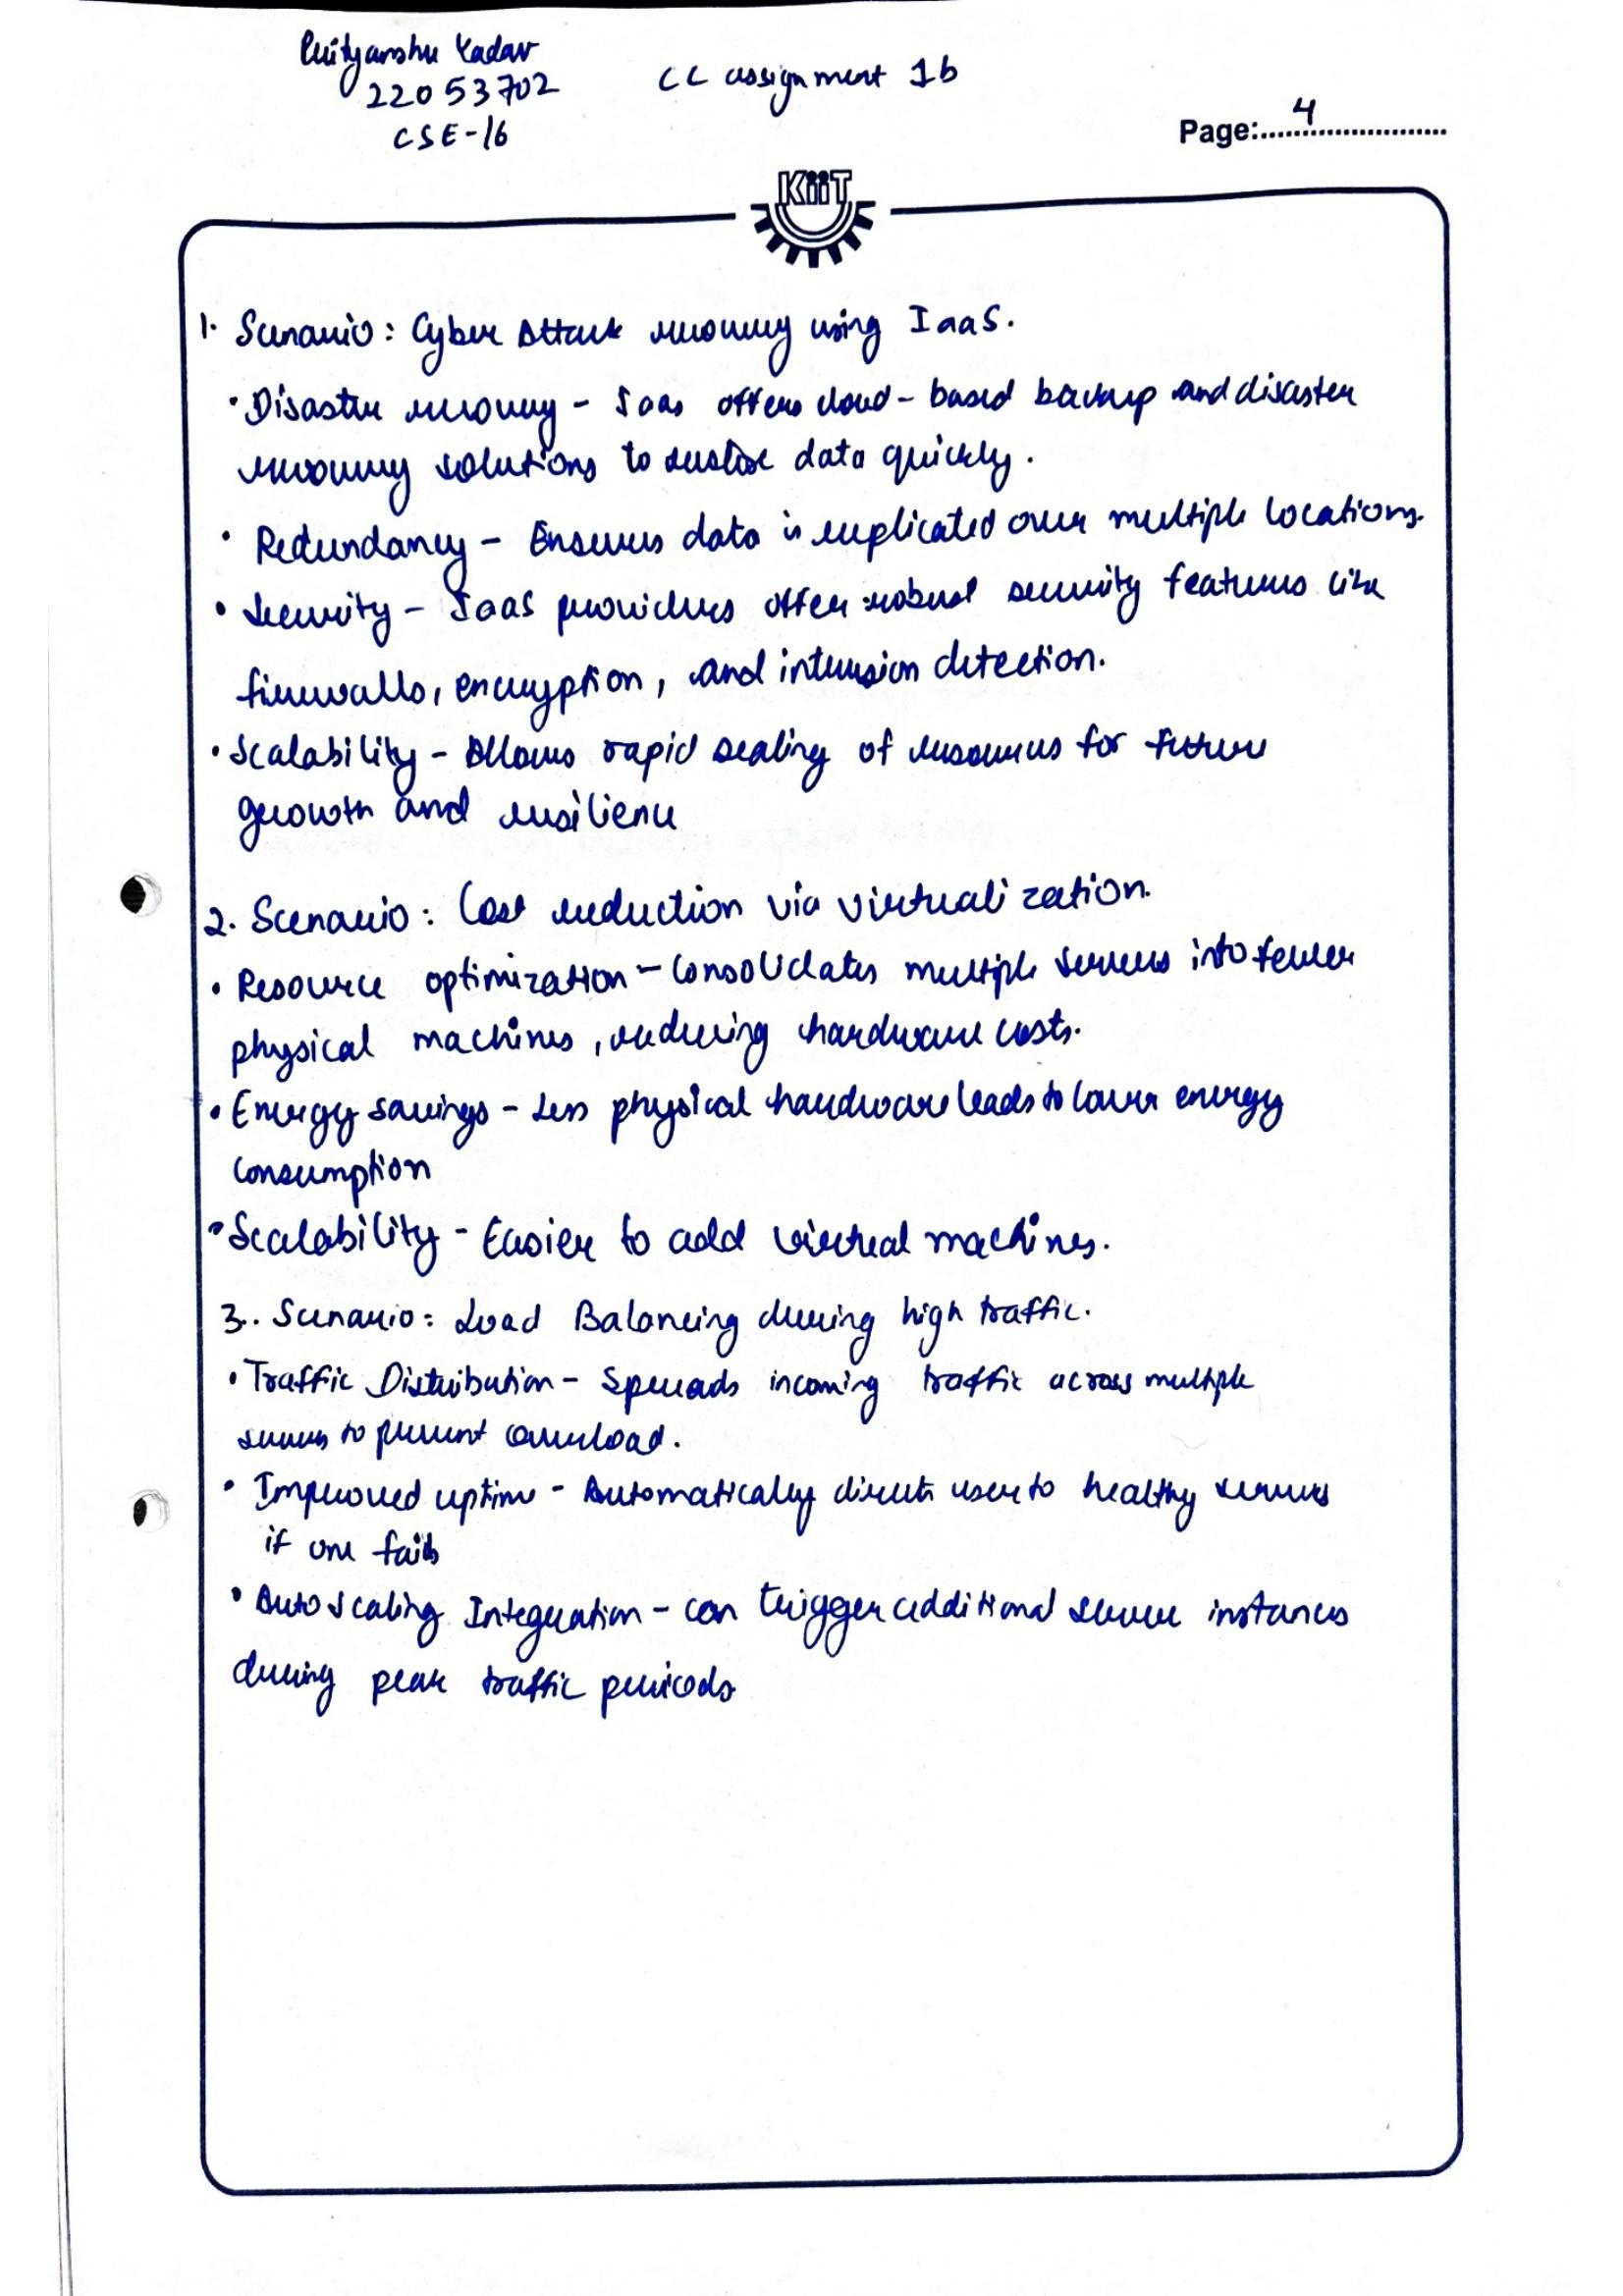 Yadav
22053702
CSE-16
CC assignment 1b
Page:....4....
KiiT
1. Scenario: Cyber Attack recovery using IaaS.
• Disaster recovery - IaaS offers cloud-based backup and disaster
recovery solutions to restore data quickly.
• Redundancy - Ensures data is replicated over multiple locations.
• Security - IaaS providers offer robust security features like
firewalls, encryption, and intrusion detection.
• Scalability - Allows rapid scaling of resources for future
growth and resilience
2. Scenario: Cost reduction via virtualization.
• Resource optimization - Consolidates multiple servers into fewer
physical machines, reducing hardware costs.
• Energy savings - Less physical hardware leads to lower energy
consumption
• Scalability - Easier to add virtual machines.
3.. Scenario: Load Balancing during high traffic.
• Traffic Distribution - Spreads incoming traffic across multiple
servers to prevent overload.
• Improved uptime - Automatically directs user to healthy servers
if one fails
• Auto scaling Integration - can trigger additional server instances
during peak traffic periods